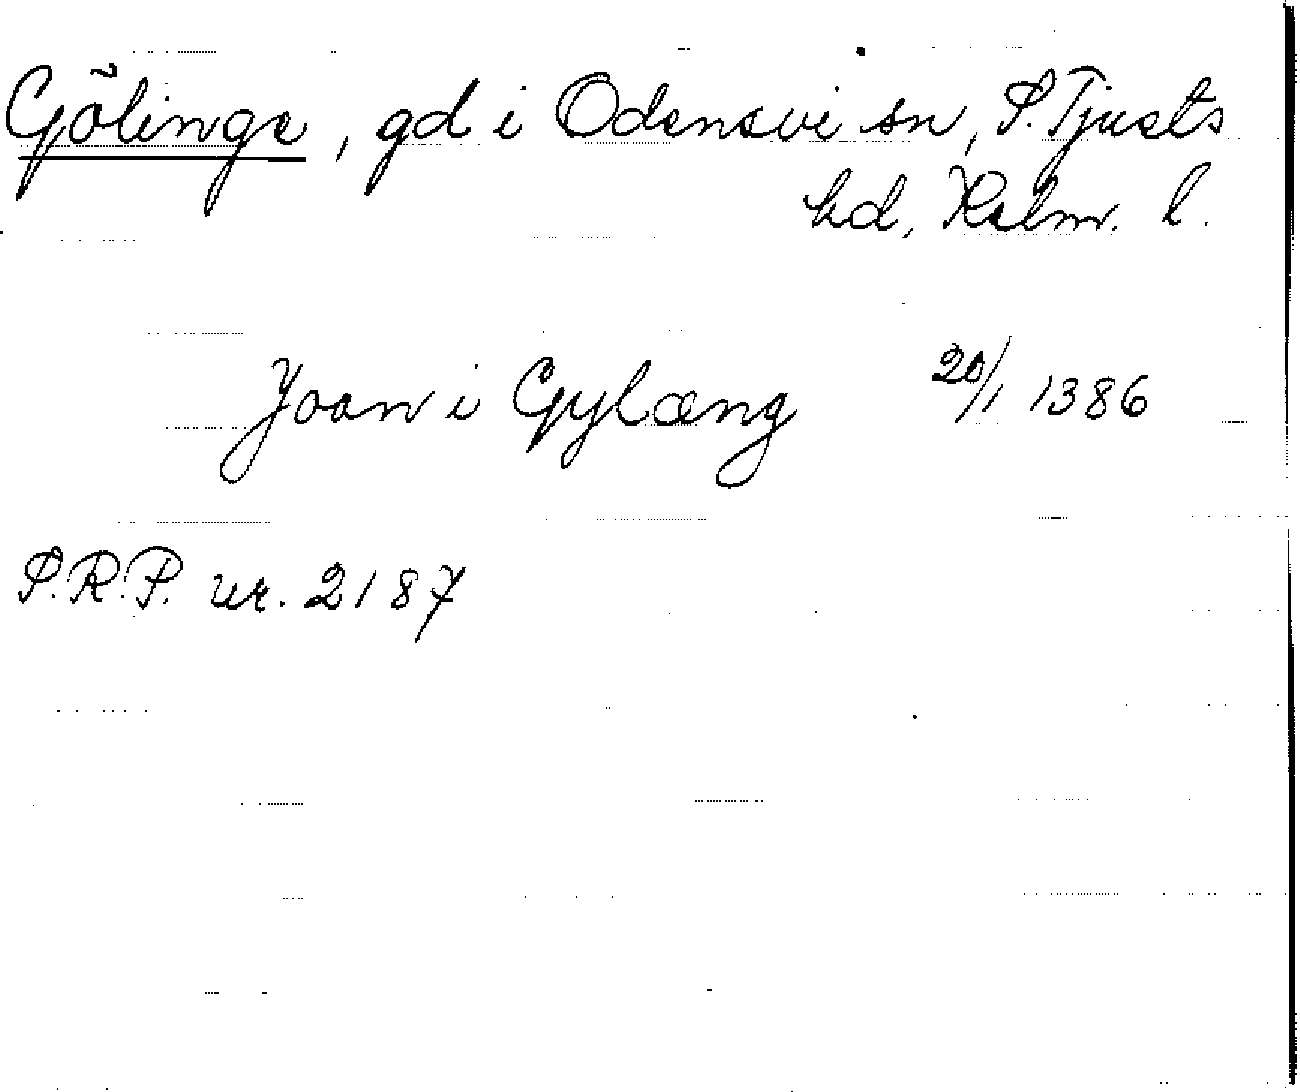 Gölinge, gd i Odensvi sn, S. Tjusts
hd, Kalm. l.
Joan i Gylæng 20/1 1386
S.R.P. nr. 2187